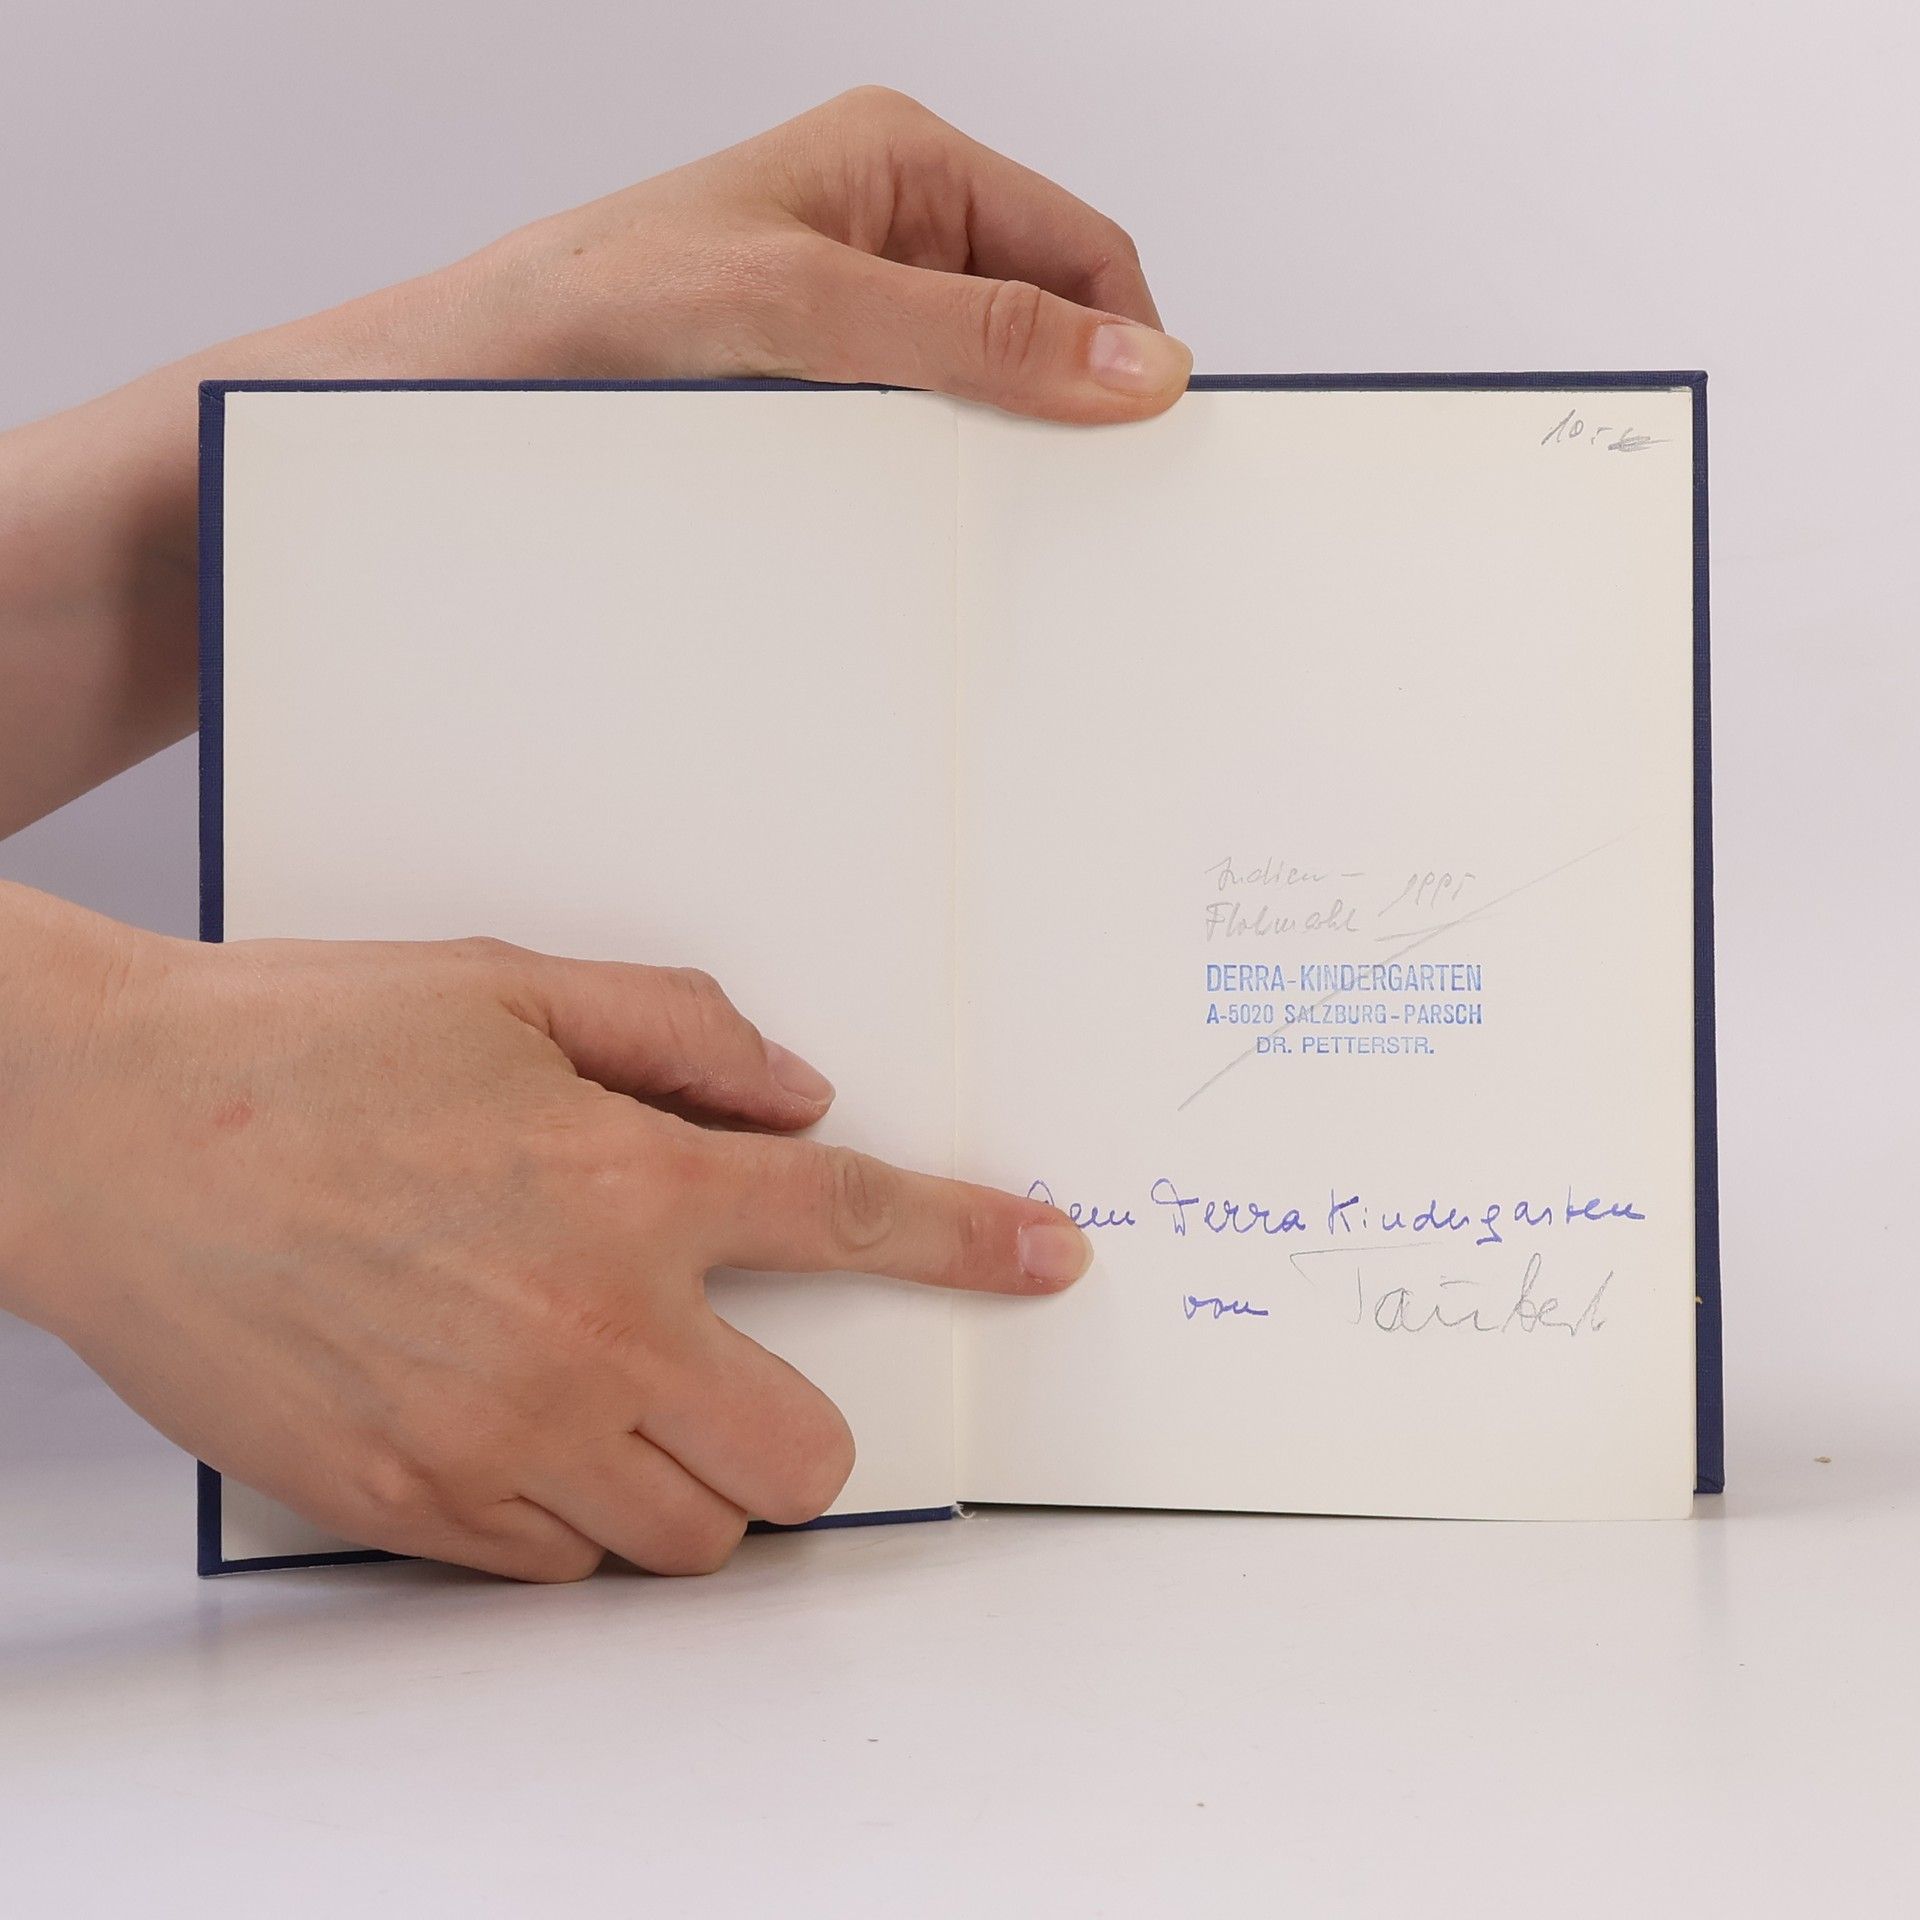 10.-
Indien -
Flohmarkt 1995
DERRA-KINDERGARTEN
A-5020 SALZBURG-PARSCH
DR. PETTERSTR.
Dem Derra Kindergarten
von Taubert